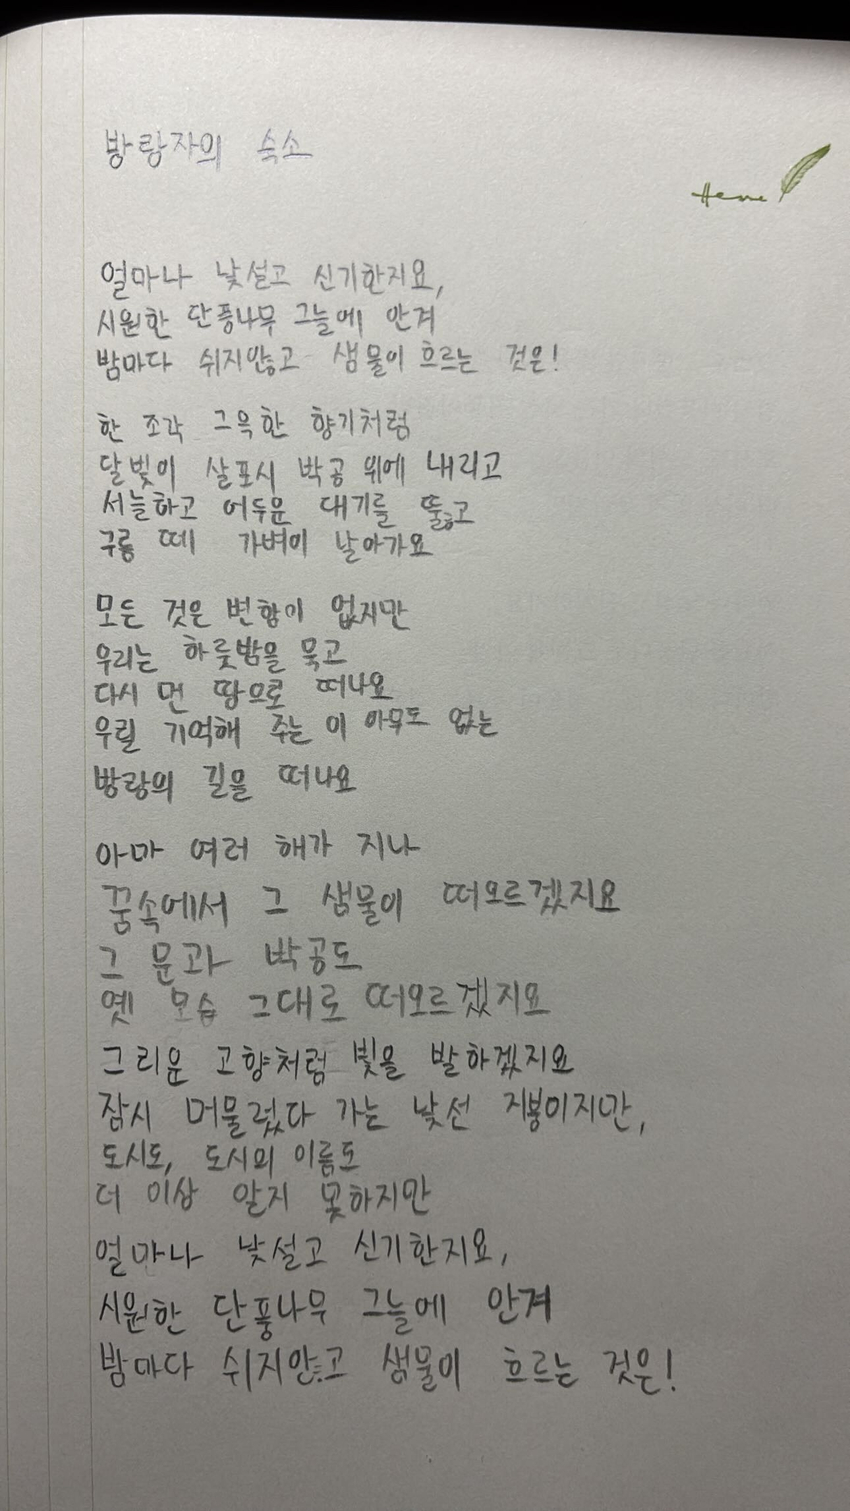 방랑자의 숙소
얼마나 낯설고 신기한지요,
시원한 단풍나무 그늘에 안겨
밤마다 쉬지않고 샘물이 흐르는 것은!
한 조각 그윽한 향기처럼
달빛이 살포시 박공 위에 내리고
서늘하고 어두운 대기를 뚫고
구름 떼 가벼이 날아가요
모든 것은 변함이 없지만
우리는 하룻밤을 묵고
다시 먼 땅으로 떠나요
우릴 기억해 주는 이 아무도 없는
방랑의 길을 떠나요
아마 여러 해가 지나
꿈속에서 그 샘물이 떠오르겠지요
그 문과 박공도
옛 모습 그대로 떠오르겠지요
그리운 고향처럼 빛을 발하겠지요
잠시 머물렀다 가는 낯선 지붕이지만,
도시도, 도시의 이름도
더 이상 알지 못하지만
얼마나 낯설고 신기한지요,
시원한 단풍나무 그늘에 안겨
밤마다 쉬지않고 샘물이 흐르는 것은!